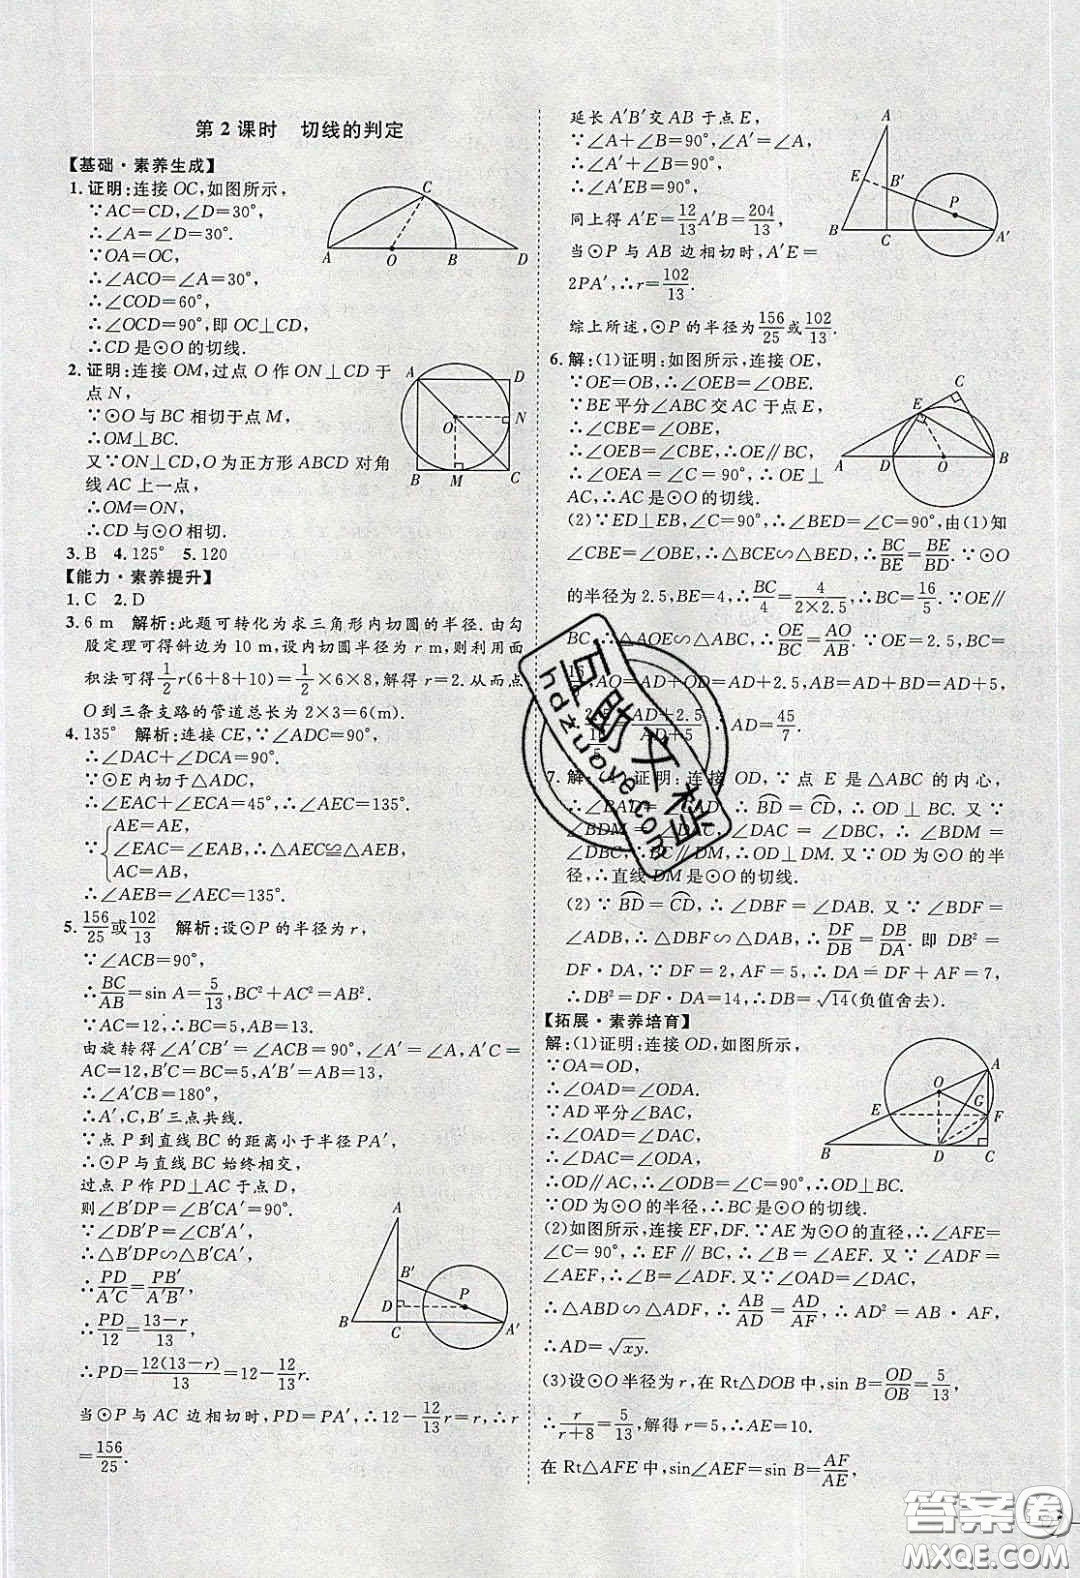 第2课时　切线的判定
【基础·素养生成】
1.证明:连接OC,如图所示,
∵AC=CD,∠D=30°,
∴∠A=∠D=30°.
∵OA=OC,
∴∠ACO=∠A=30°,
∴∠COD=60°,
∴∠OCD=90°,即OC⊥CD,
∴CD是⊙O的切线.
2.证明:连接OM,过点O作ON⊥CD于
点N,
∵⊙O与BC相切于点M,
∴OM⊥BC.
又∵ON⊥CD,O为正方形ABCD对角
线AC上一点,
∴OM=ON,
∴CD与⊙O相切.
3.B　4.125°　5.120
【能力·素养提升】
1.C　2.D
3.6 m　解析:此题可转化为求三角形内切圆的半径.由勾
股定理可得斜边为10 m,设内切圆半径为r m,则利用面
积法可得1/2r(6+8+10)=1/2×6×8,解得r=2.从而点
O到三条支路的管道总长为2×3=6(m).
4.135°　解析:连接CE,∵∠ADC=90°,
∴∠DAC+∠DCA=90°.
∵⊙E内切于△ADC,
∴∠EAC+∠ECA=45°,∴∠AEC=135°.
∵{AE=AE,
∠EAC=∠EAB,∴△AEC≌△AEB,
AC=AB,
∴∠AEB=∠AEC=135°.
5.156/25或102/13　解析:设⊙P的半径为r,
∵∠ACB=90°,
∴BC/AB=sin A=5/13,BC²+AC²=AB².
∵AC=12,∴BC=5,AB=13.
由旋转得∠A′CB′=∠ACB=90°,∠A′=∠A,A′C=
AC=12,B′C=BC=5,A′B′=AB=13.
∴∠A′CB=180°,
∴A′,C,B′三点共线.
∵点P到直线BC的距离小于半径PA′,
∴⊙P与直线BC始终相交,
过点P作PD⊥AC于点D,
则∠B′DP=∠B′CA′=90°.
∵∠DB′P=∠CB′A′,
∴△B′DP∽△B′CA′,
∴PD/A′C=PB′/A′B′,
∴PD/12=13-r/13,
∴PD=12(13-r)/13=12-12/13r.
当⊙P与AC边相切时,PD=PA′,∴12-12/13r=r,∴r
=156/25.
延长A′B′交AB于点E,
∵∠A+∠B=90°,∠A′=∠A,
∴∠A′+∠B=90°,
∴∠A′EB=90°,
同上得A′E=12/13A′B=204/13.
当⊙P与AB边相切时,A′E=
2PA′,∴r=102/13.
综上所述,⊙P的半径为156/25或102/13.
6.解:(1)证明:如图所示,连接OE,
∵OE=OB,∴∠OEB=∠OBE.
∵BE平分∠ABC交AC于点E,
∴∠CBE=∠OBE,
∴∠OEB=∠CBE,∴OE∥BC,
∴∠OEA=∠C=90°,∴OE⊥
AC,∴AC是⊙O的切线.
(2)∵ED⊥EB,∠C=90°,∴∠BED=∠C,由(1)知
∠CBE=∠OBE,∴△BCE∽△BED,∴BC/BE=BE/BD.∵⊙O
的半径为2.5,BE=4,∴BC/4=4/2×2.5,∴BC=16/5.∵OE∥
BC,∴△AOE∽△ABC,∴OE/BC=AO/AB.∵OE=2.5,BC=
16/5,AO=AD+OD=AD+2.5,AB=AD+BD=AD+5,
∴2.5/16/5=AD+2.5/AD+5,∴AD=45/7.
7.解:(1)证明:连接OD,∵点E是△ABC的内心,
∴∠BAD=∠CAD,∴BD=CD,∴OD⊥BC.又∵
∠BDM=∠DAC,∠DAC=∠DBC,∴∠BDM=
∠DBC,∴BC∥DM,∴OD⊥DM.又∵OD为⊙O的半
径,∴直线DM是⊙O的切线.
(2)∵BD=CD,∴∠DBF=∠DAB.又∵∠BDF=
∠ADB,∴△DBF∽△DAB,∴DF/DB=DB/DA.即DB²=
DF·DA.∵DF=2,AF=5,∴DA=DF+AF=7,
∴DB²=DF·DA=14,∴DB=√14(负值舍去).
【拓展·素养培育】
解:(1)证明:连接OD,如图所示,
∵OA=OD,
∴∠OAD=∠ODA.
∵AD平分∠BAC,
∴∠OAD=∠DAC,
∴∠ODA=∠DAC,
∴OD∥AC,∴∠ODB=∠C=90°.
∵OD为⊙O的半径,∴BC是⊙O的切线.
(2)如图所示,连接EF,DF.∵AE为⊙O的直径,∴∠AFE=
∠C=90°,∴EF∥BC,∴∠B=∠AEF.又∵∠ADF=
∠AEF,∴∠B=∠ADF.又∵∠OAD=∠DAC,
∴△ABD∽△ADF,∴AB/AD=AD/AF,∴AD²=AB·AF,
∴AD=√xy.
(3)设⊙O半径为r,在Rt△DOB中,sin B=OD/OB=5/13,
∴r/r+8=5/13,解得r=5,∴AE=10.
在Rt△AFE中,sin∠AEF=sin B=AF/AE,
互助文档
hdzuoye.com
答案圈
MXQE.COM